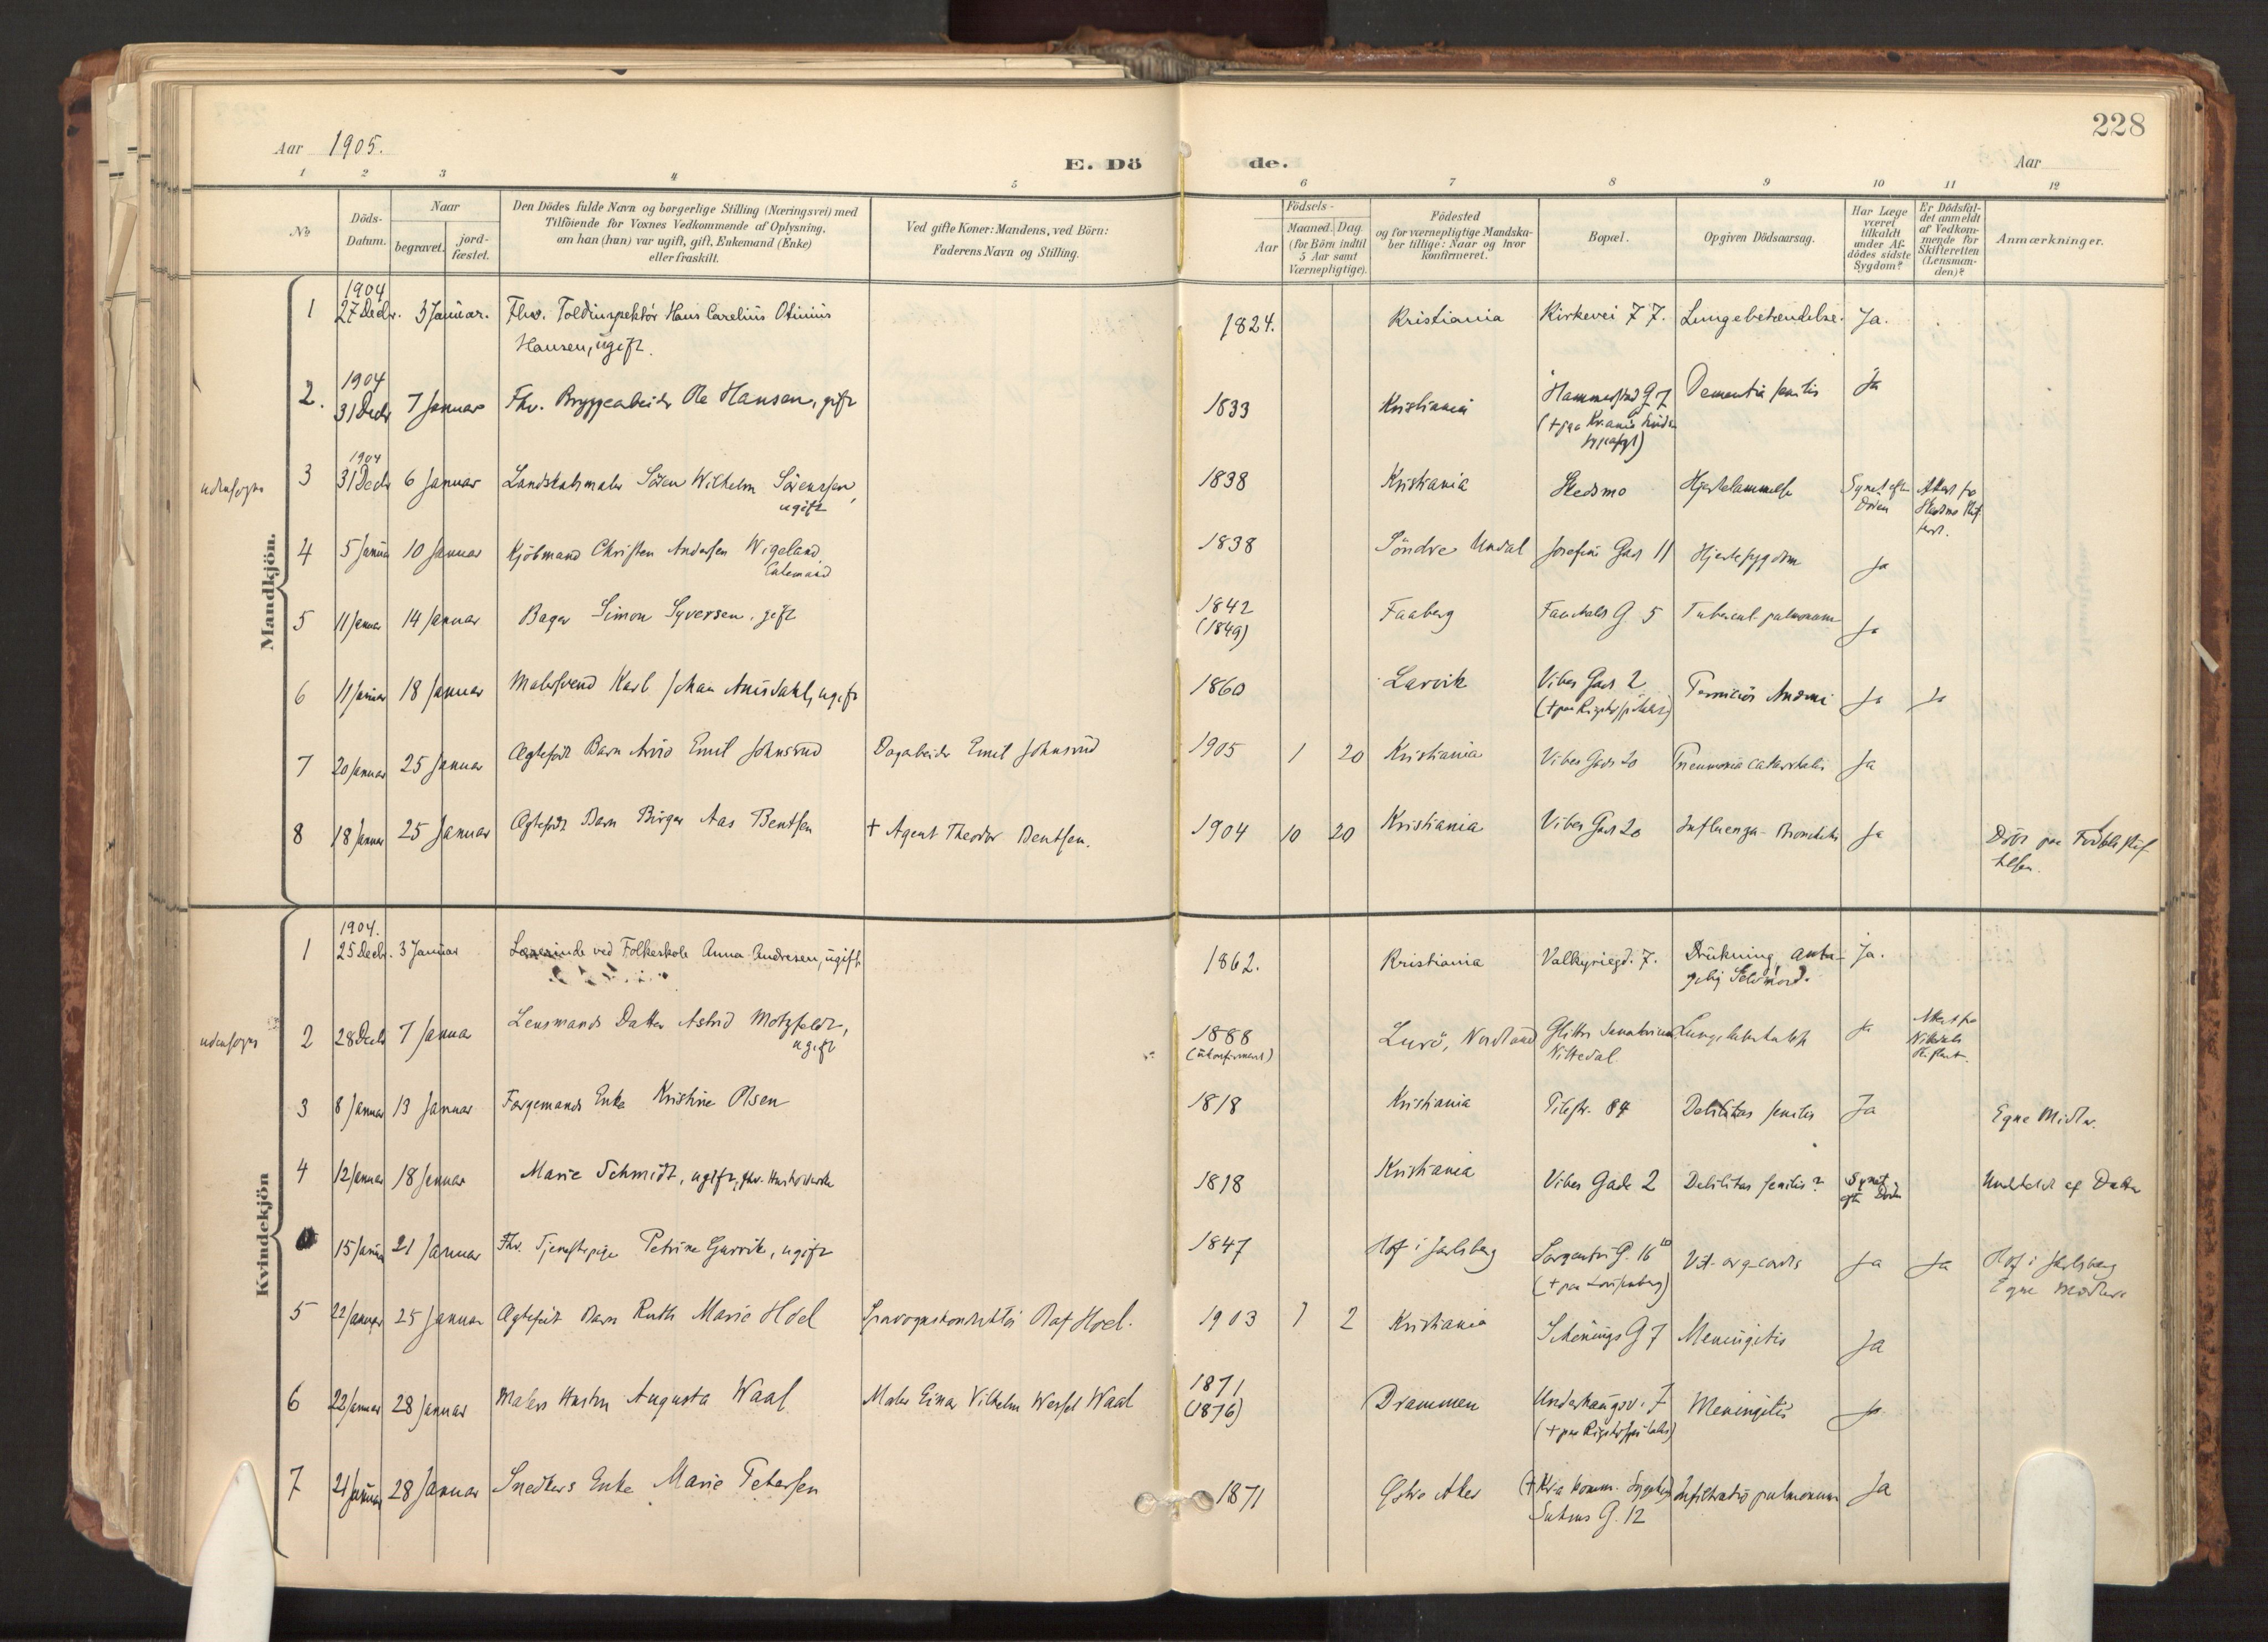 228
Aar 1905.
E. Döde.
Aar
1 2 3 4 5 6 7 8 9 10 11 12
No
Döds-Datum.
Naar
begravet.
jord-fæstet.
Den Dödes fulde Navn og borgerlige Stilling (Næringsvei) med
Tilföiende for Voxnes Vedkommende af Oplysning,
om han (hun) var ugift, gift, Enkemand (Enke)
eller fraskilt.
Ved gifte Koner: Mandens, ved Börn:
Faderens Navn og Stilling.
Födsels-
Aar
Maaned. Dag.
(for Börn indtil
5 Aar samt
Værnepligtige).
Födested
og for værnepligtige Mandska-
ber tillige: Naar og hvor
konfirmeret.
Bopæl.
Opgiven Dödsaarsag.
Har Læge
været
tilkaldt
under Af-
dödes sidste
Sygdom?
Er Dödsfal-
det anmeldt
af Vedkom-
mende for
Skifteretten
(Lensman-
den)?
Anmærkninger.
Mandkjön.
1904
1 27 Decbr. 3 Januar. Fhv. Toldinspektör Hans Carelius Otinius 1824. Kristiania Kirkevei 77. Lungebetændelse. Ja.
Hansen, ugift.
1904
2. 31 Decbr 7 Januar Fhv. Bryggearbeider Ole Hansen, gift 1833 Kristiania Hammerstad G 7 Dementia senilis Ja
1904
udensogns 3 31 Decbr 6 Januar Landskabsmaler Sören Wilhelm Sörensen, 1838 Kristiania Skedsmo Hjertelammelse Synet efter Döden
ugift
4 5 Januar 10 Januar Kjöbmand Christen Andersen Wigeland 1838 Söndre Undal Josefine Gad 11 Hjertesygdom Ja
Enkemand
5 11 Januar 14 Januar Bager Simon Syversen, gift 1842 Faaberg Fauchalds G 5 Tubercul. pulmonum Ja
(1849)
6 11 Januar 18 Januar Malersvend Karl Johan Amisdahl, ugift 1860 Larvik Vibes Gad 2 Perniciös Anæmi Ja Ja
(+ paa Rigshospitalet)
7 20 Januar 25 Januar Ægtefödt Barn Arvid Emil Johnsrud Dagarbeider Emil Johnsrud 1905 1 20 Kristiania Vibes Gad 20 Pneumonia catarrhalis Ja
8 18 Januar 25 Januar Ægtefödt Barn Birger Aas Bentsen + Agent Theodor Bentsen. 1904 10 20 Kristiania Vibes Gad 20 Influenza-Bronchitis Ja Döbt paa
Kvindekjön
1904.
1 25 Decbr. 3 Januar Lærerinde ved Folkeskole Anna Andresen, ugift 1862. Kristiania Valkyriegd. 7. Drukning, anta- Ja.
gelig Selvmord.
udensogns 2 28 Decbr 7 Januar Lensmands Datter Astrid Motzfeldt, 1888 Lurö, Nordland Glittre Sanatorium Lungetuberkulose Ja Attest fra
ugift (ukonfirmert) Nittedal Nittedals
3 8 Januar 13 Januar Fargemands Enke Kristine Olsen 1818 Kristiania Pilestr. 84 Debilitas senilis Ja Egne Midler.
4 12 Januar 18 Januar Marie Schmidt, ugift, 1818 Kristiania Vibes Gade 2 Debilitas senilis? Synet efter Döden Underholdt af Datter
15 Januar 21 Januar Fhv. Tjenestepige Petrine Gurrik, ugift 1847 Hof i Jarlsberg Sorgenfri G. 16 Vit. org. cordis Ja Ja Hof i Jarlsberg
(+ paa Lovisenberg) Egne Midler
5 22 Januar 25 Januar Ægtefödt Barn Ruth Marie Hoel Sporvognskonduktör Olaf Hoel. 1903 7 2 Kristiania Schönings G 7 Meningitis Ja
6 22 Januar 28 Januar Malers Hustru Augusta Waal Maler Einar Vilhelm Wessel Waal 1871 Drammen Underhaugsv. 7 Meningitis Ja
(1876) (+ paa Rigshospitalet)
7 21 Januar 28 Januar Snedkers Enke Marie Petersen 1871 Östre Aker (+ Kr.a komm. Sygehus) Infiltratio pulmonum Ja
G. 12